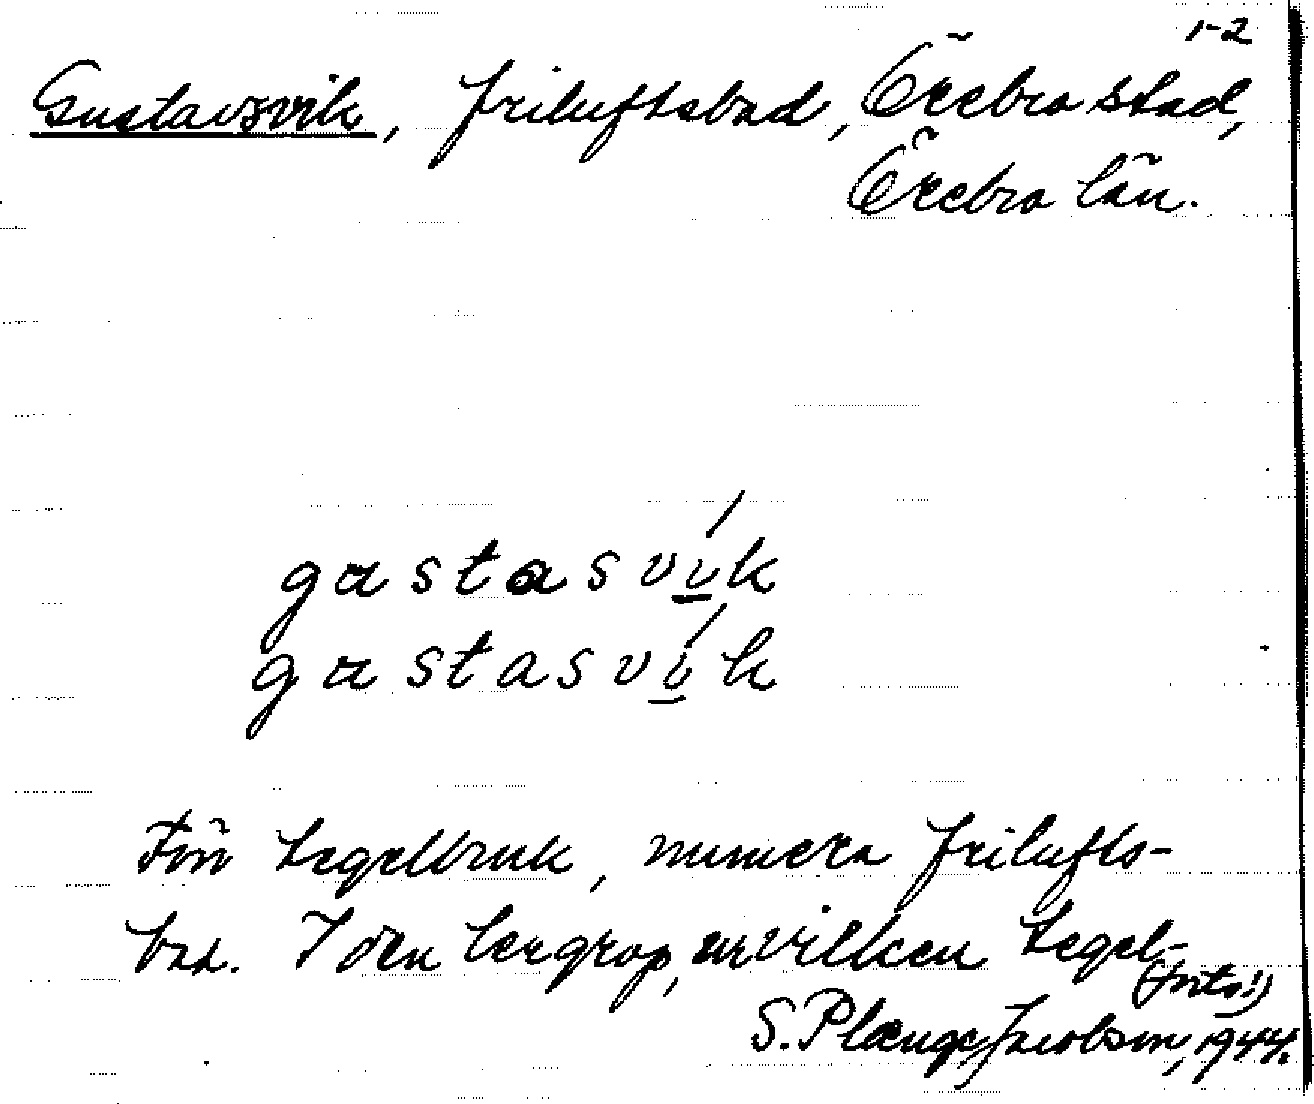 1-2
Gustavsvik, friluftsbad, Örebro stad,
Örebro län.
gustasvík
gustasvík
Förr tegelbruk, numera frilufts-
bad. I den lergrop, ur vilken tegel-
(forts!)
S. Plænge Jacobson, 1944.